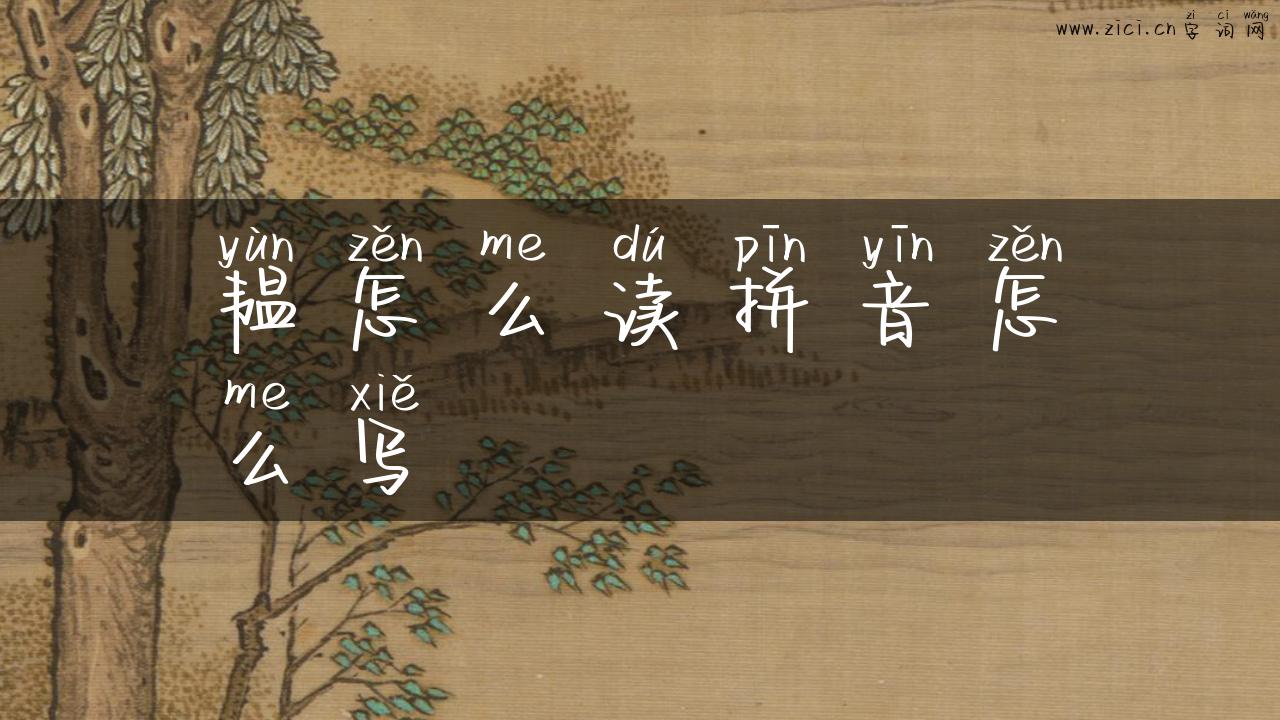 zì cí wǎng
www.zici.cn 字词网
yùn zěn me dú pīn yīn zěn
韫怎么读拼音怎
me xiě
么写